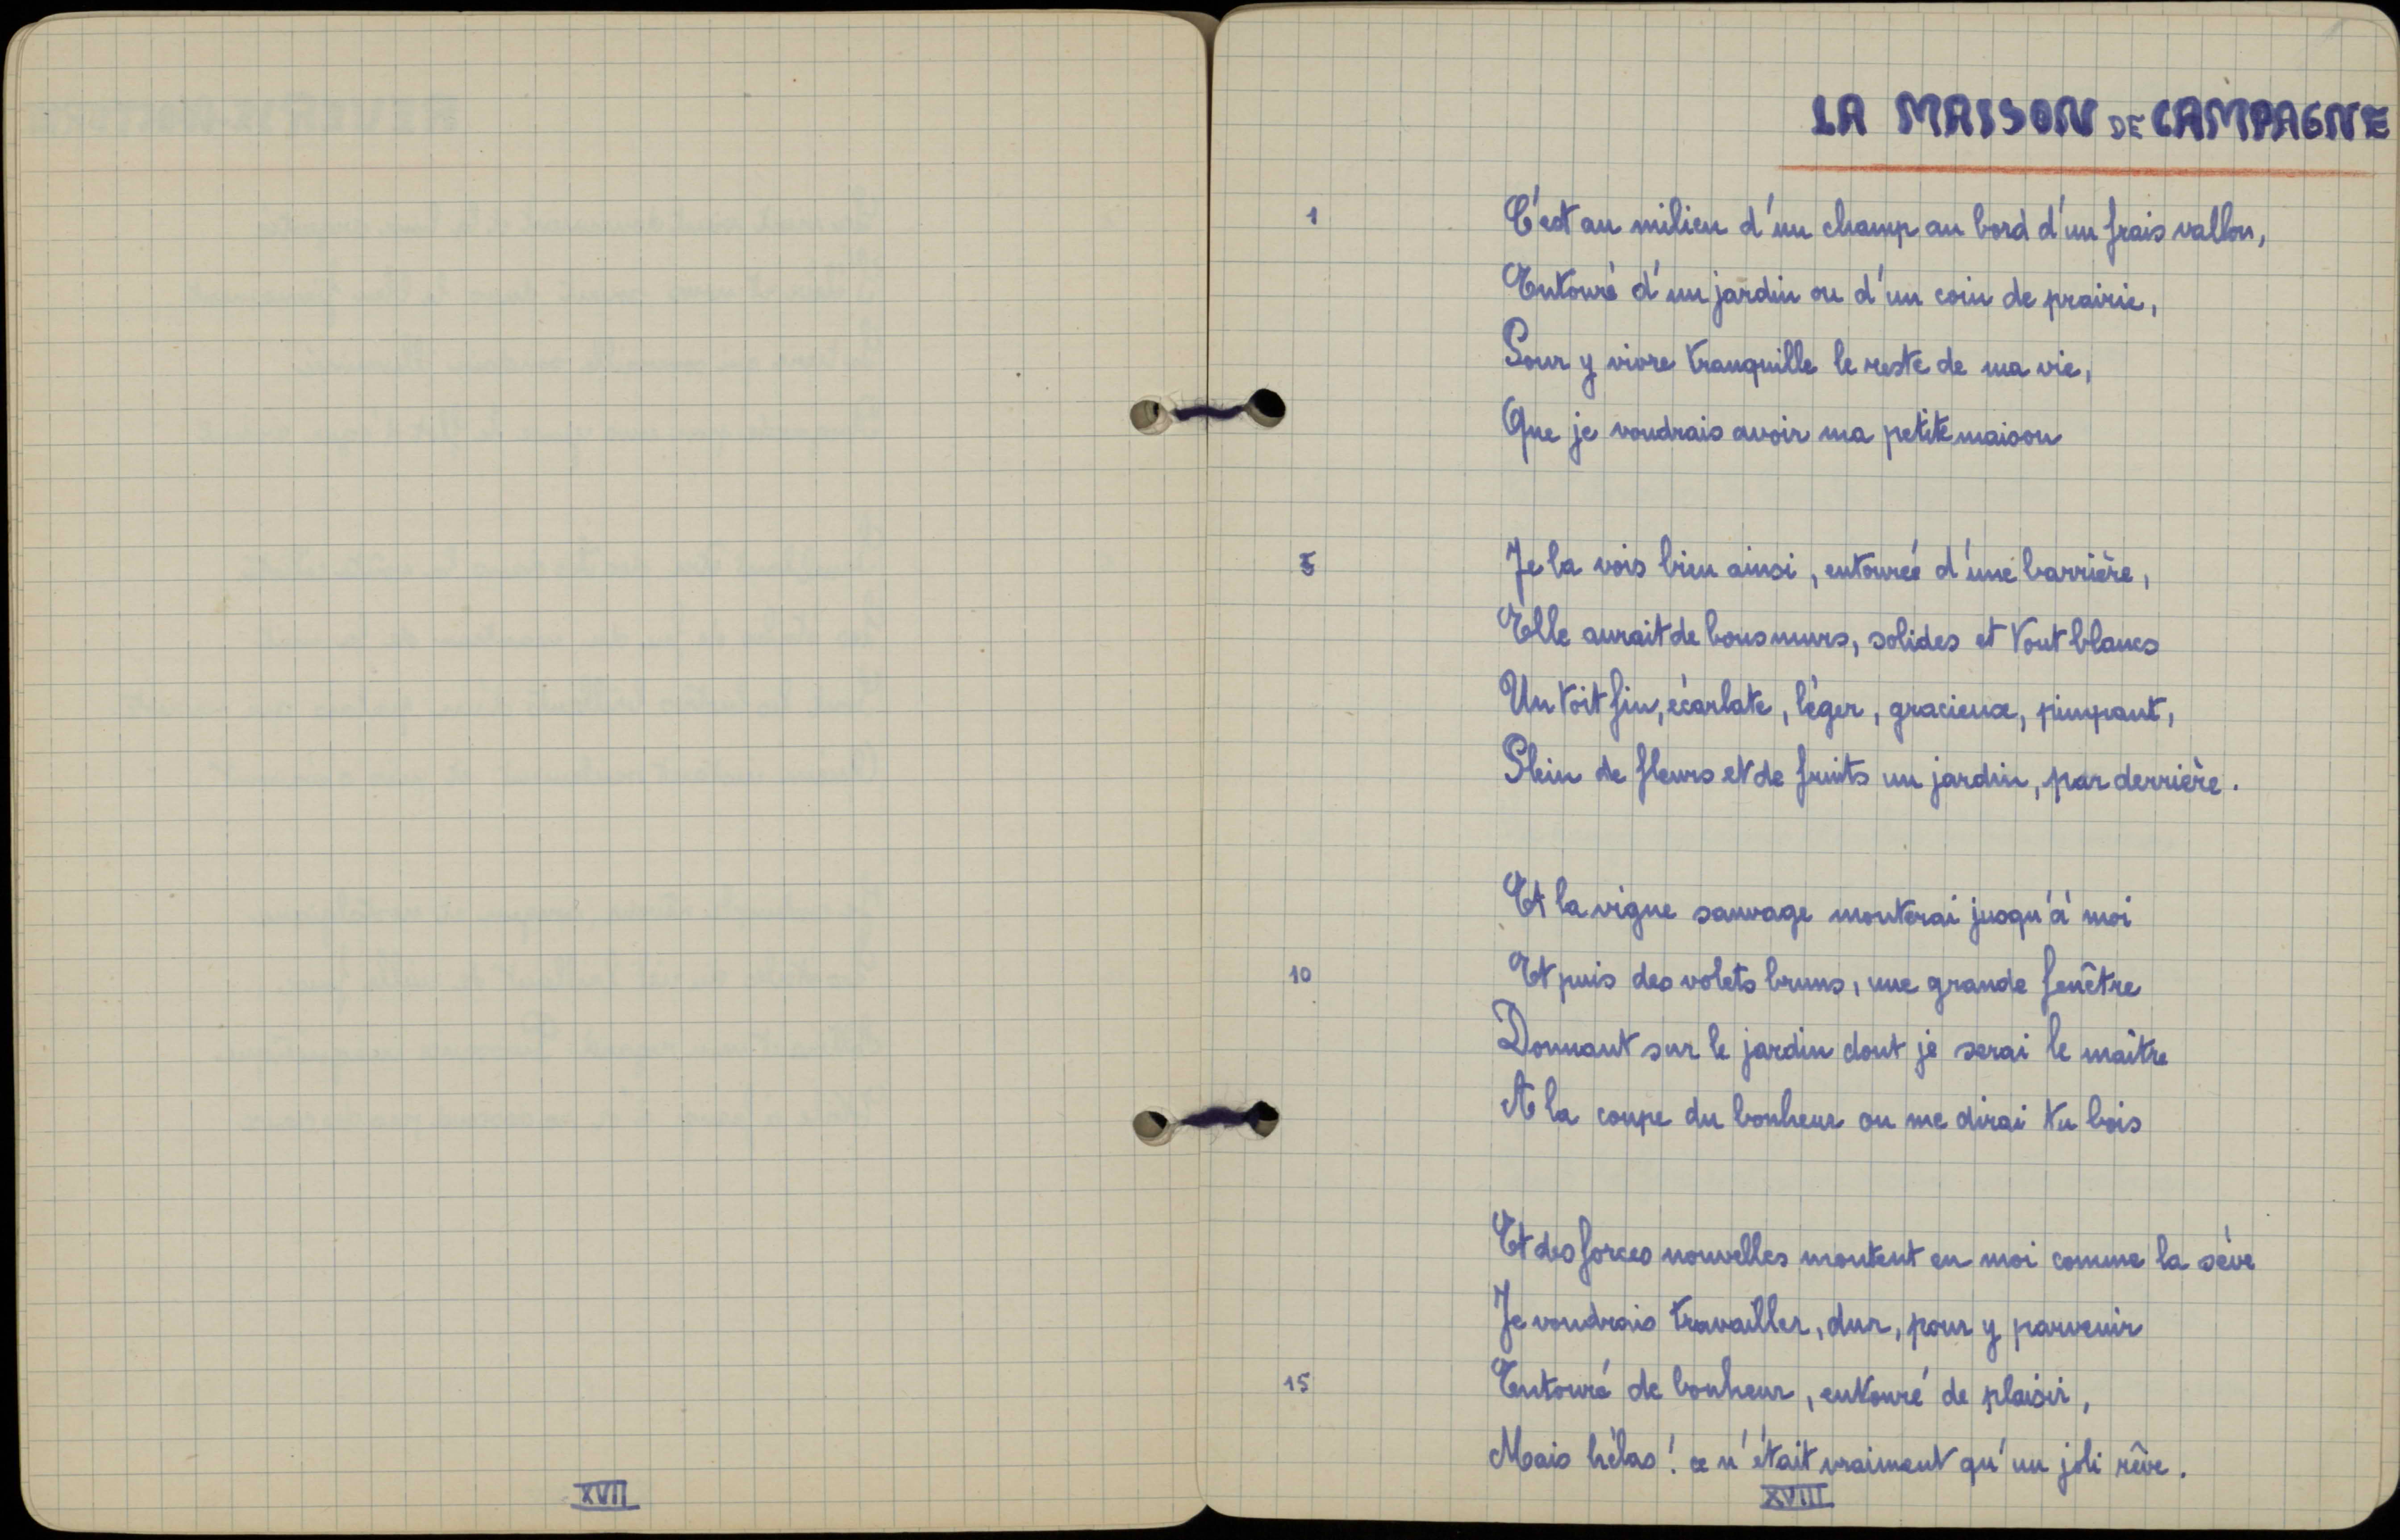 XVII
LA MAISON DE CAMPAGNE
1 C'est au milieu d'un champ au bord d'un frais vallon,
Entouré d'un jardin ou d'un coin de prairie,
Pour y vivre tranquille le reste de ma vie,
Que je voudrais avoir ma petite maison
5 Je la vois bien ainsi, entourée d'une barrière,
Elle aurait de bons murs, solides et tout blancs
Un toit fin, écarlate, léger, gracieux, pimpant,
Plein de fleurs et de fruits un jardin, par derrière.
Et la vigne sauvage monterai jusqu'à moi
10 Et puis des volets bruns, une grande fenêtre
Donnant sur le jardin dont je serai le maître
A la coupe du bonheur on me dirai tu bois
Et des forces nouvelles montent en moi comme la sève
Je voudrais travailler, dur, pour y parvenir
15 Entouré de bonheur, entouré de plaisir,
Mais hélas! ce n'était vraiment qu'un joli rêve.
XVIII